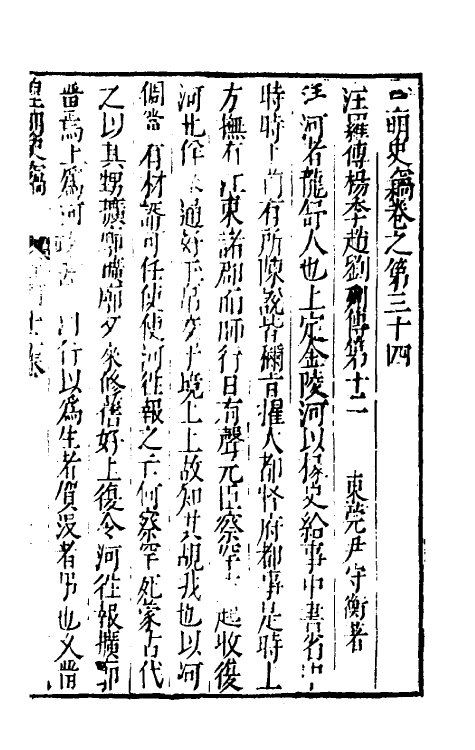 明史竊卷之第三十四
汪羅傅楊李趙劉列傳第十二 東莞尹守衡著
汪河者龍舒人也上定金陵河以掾史給事中書省
時時上前有所陳說皆稱旨擢大都督府都事是時上
方撫有江東諸郡而師行日有聲元臣察罕 起收復
河北 通好 上故知其覘我也以河
倜儻有材諝可任使使河往報之亡何察罕死蒙古代
之以其甥擴廓擴廓夕來修舊好上復令河往報擴廓
畱焉上為河 行以為生者賀沒者弔也又畱
皇明史竊